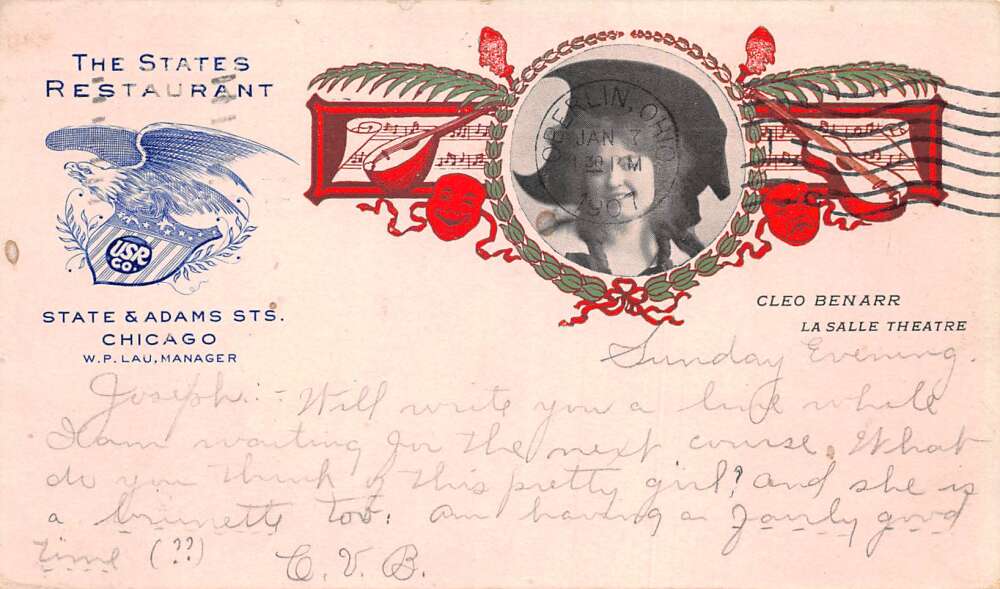 THE STATES
RESTAURANT
USR
CO.
STATE & ADAMS STS.
CHICAGO
W. P. LAU, MANAGER
OBERLIN, OHIO
JAN 7
1 30 PM
1907
CLEO BENARR
LA SALLE THEATRE
Sunday Evening.
Joseph. - Will write you a line while
I am waiting for the next course. What
do you think of this pretty girl? and she is
a brunette too. Am having a fairly good
time (??) C. V. B.